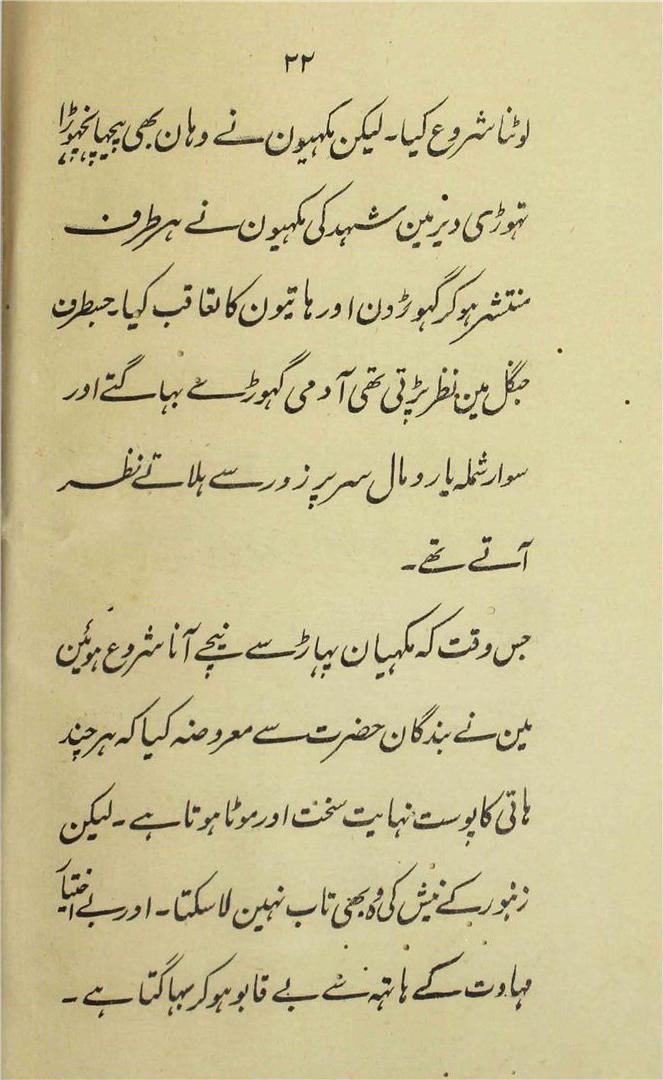 ۲۲
لوٹنا شروع کیا۔ لیکن مکہیون نے وہان بھی پیچہا نچہوڑا
تہوڑی دیر مین شہد کی مکہیون نے ہر طرف
منتشر ہو کر گہوڑون اور ہاتیون کا تعاقب کیا۔ جسطرف
جنگل مین نظر پڑتی تھی آدمی گہوڑے بہاگتے اور
سوار شملہ یا رومال سر پر زور سے ہلاتے نظر
آتے تھے۔
جس وقت کہ مکہیان پہاڑ سے نیچے آنا شروع ہوئین
مین نے بندگان حضرت سے معروضہ کیا کہ ہر چند
ہاتی کا پوست نہایت سخت اور موٹا ہوتا ہے۔ لیکن
زنبور کے نیش کی وہ بھی تاب نہین لا سکتا۔ اور بے اختیار
مہاوت کے ہاتہہ سے بے قابو ہو کر بہاگتا ہے۔